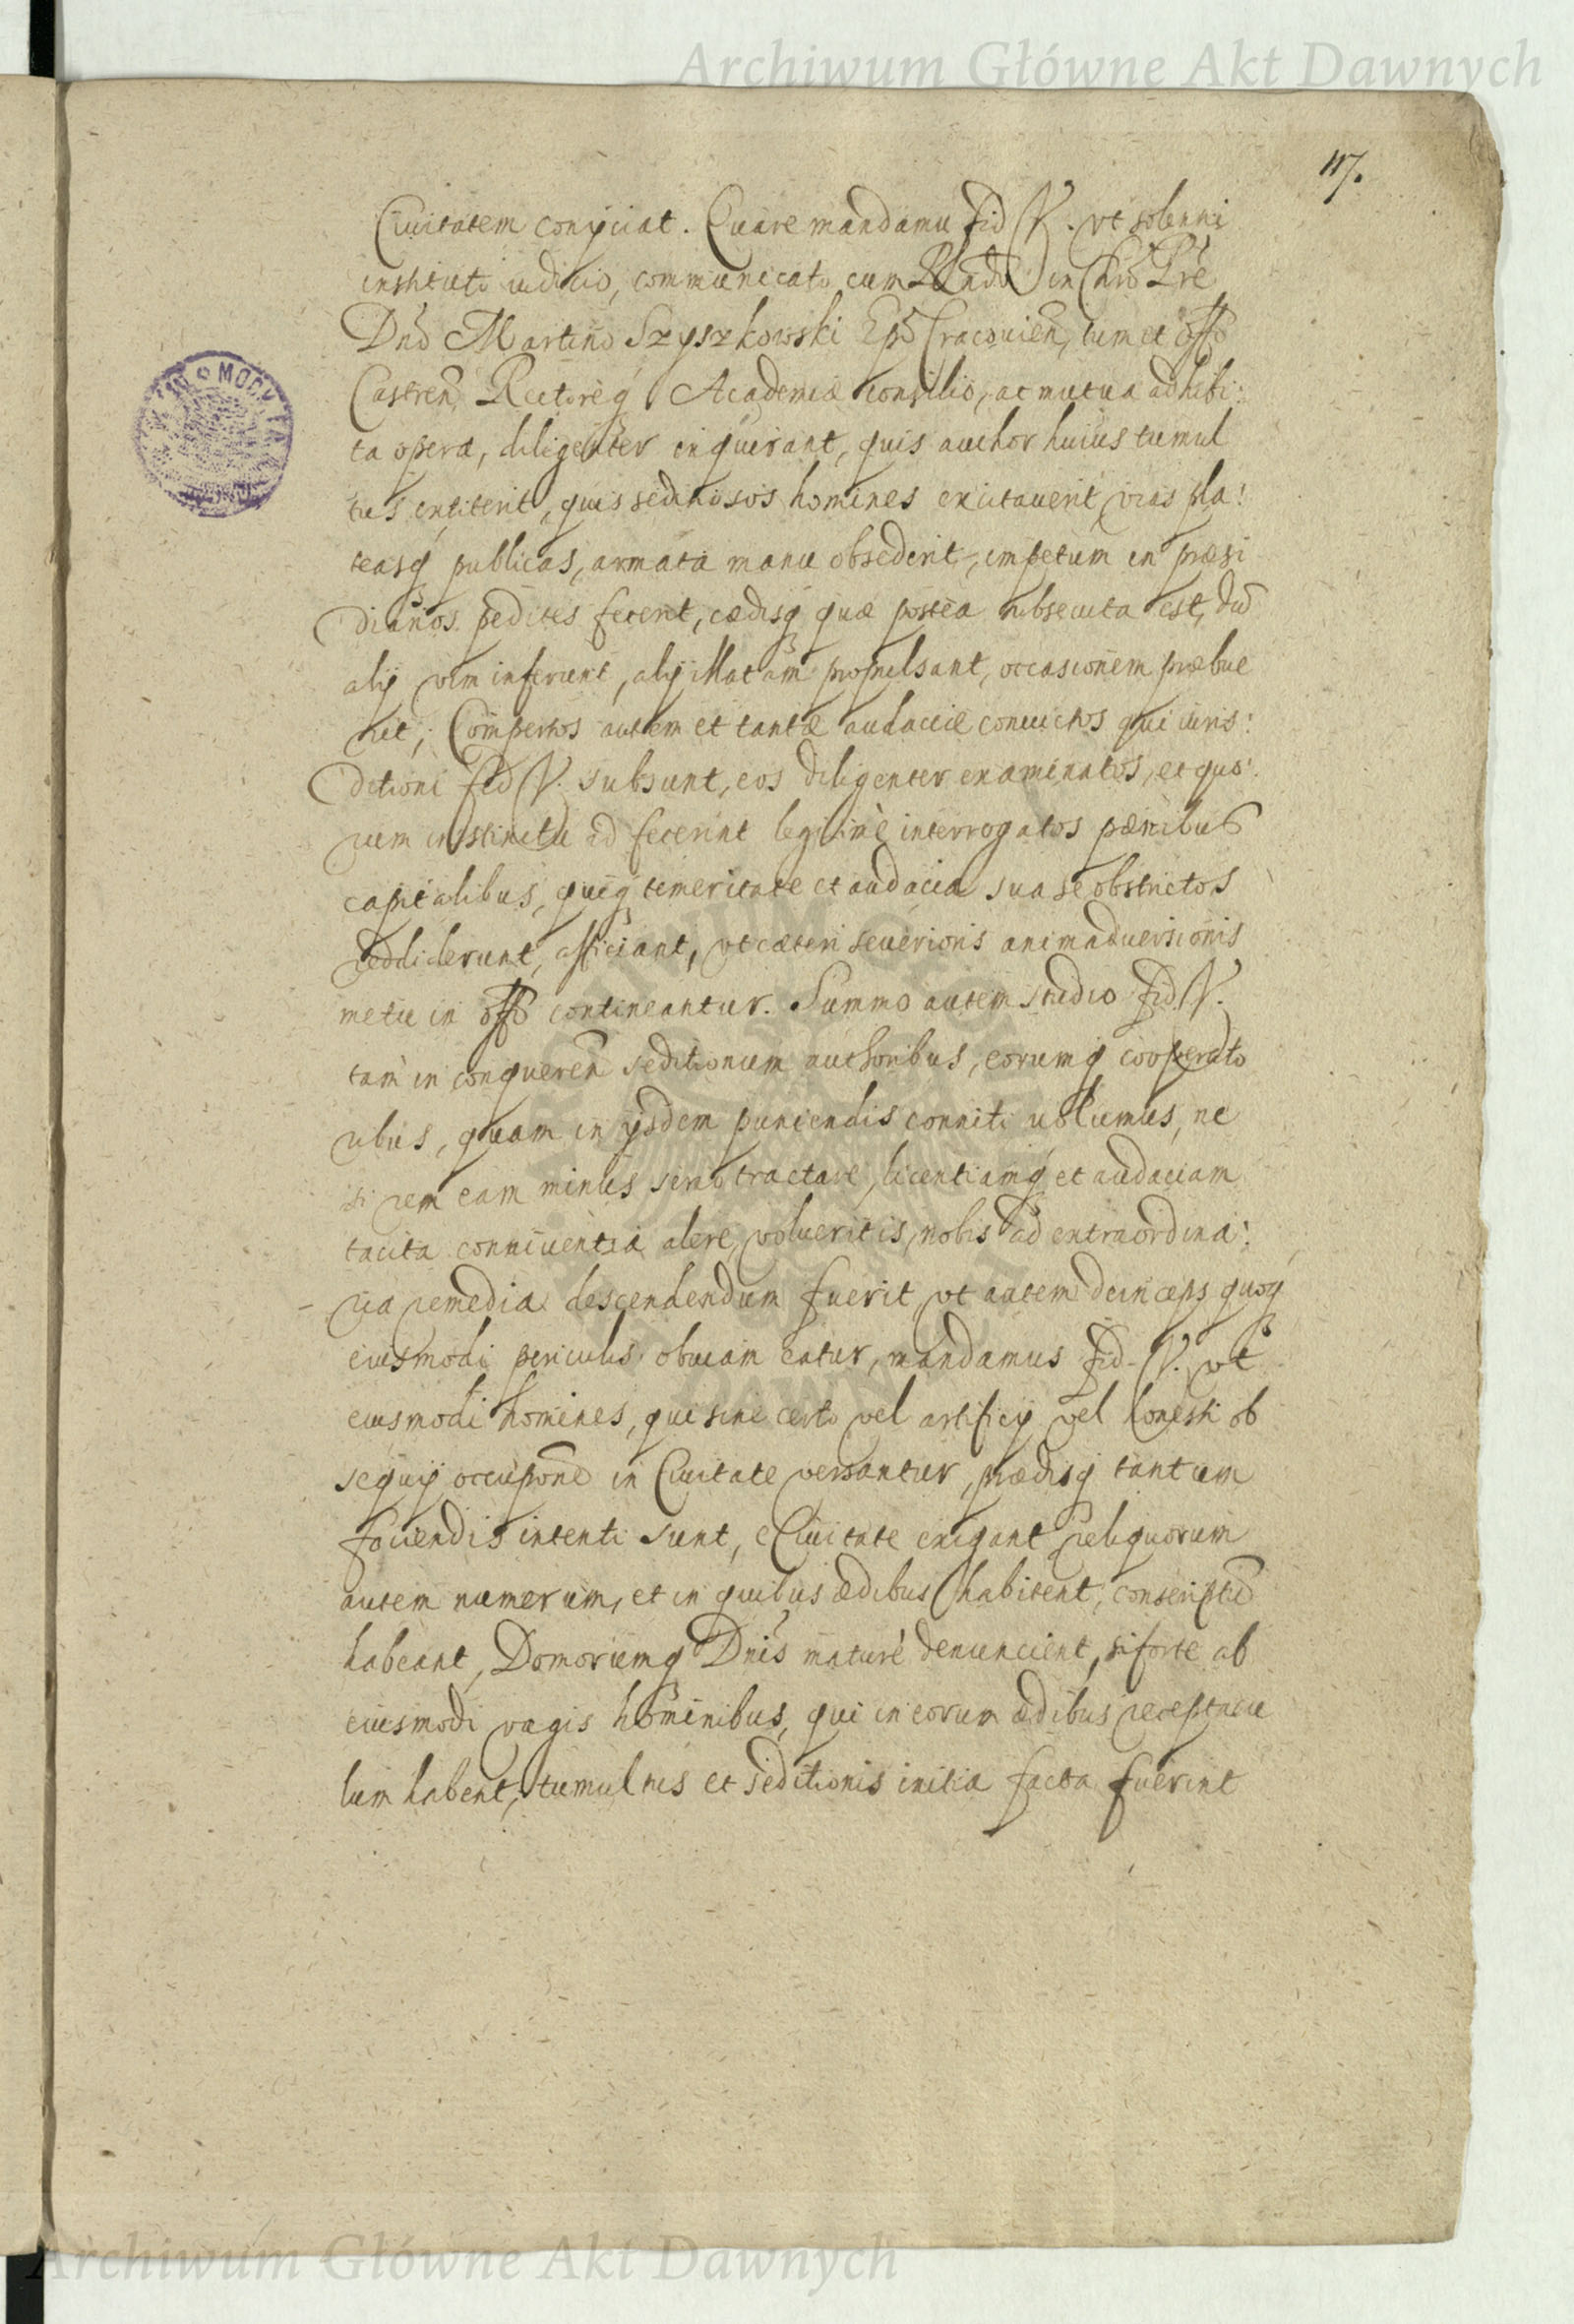 Archiwum Główne Akt Dawnych
117.
Ciuitatem conijciat. Quare mandamu fid V. vt solenni
instituto iudicio, communicato cum Rndo in Chro Pre
Dno Martino Szyszkowski Epo Cracouien, tum et offo
Castren Rectoreq Academiæ consilio, ac mutua adhibi:
ta opera, diligenter inquirant, quis author huius tumul
tus extiterit, quis seditiosos homines excitauerit, vias pla:
teasq publicas, armata manu obsederit, impetum in præsi
dianos pedites fecerit, cædisq quæ postea subsecuta est, du
alij vim inferunt, alij illatam propulsant, occasionem præbue
rit; Compertos autem et tantæ audaciæ conuictos qui iuris:
dictioni fid V. subsunt, eos diligenter examinatos, et quo:
rum instinctu id fecerint legitime interrogatos pœnibus
capitalibus, queis temeritate et audacia sua se obstrictos
reddiderunt, afficiant, vt cæteri seuerioris animaduersionis
metu in offo contineantur. Summo autem studio fid V.
tam in conqueren seditionum authoribus, eorumq cooperato
ribus, quam in ijsdem puniendis conniti uolumus, ne
si rem eam minus serio tractare, licentiamq et audaciam
tacita conniuentia alere volueritis, nobis ad extraordina:
ria remedia descendendum fuerit vt autem deinceps quoq
eiusmodi periculis obuiam eatur, mandamus fid. V. vt
eiusmodi homines, qui sine certo vel artificij vel honesti ob
sequij occupone in Ciuitate versantur, prædisq tantum
faciendis intenti sunt, e Ciuitate exigant reliquorum
autem numerum, et in quibus ædibus habitent, conscriptu
habeant, Domorumq Dnis mature denuncient, si forte ab
eiusmodi vagis hominibus, qui in eorum ædibus receptacu
lum habent, tumultus et seditionis initia facta fuerint
Archiwum Główne Akt Dawnych